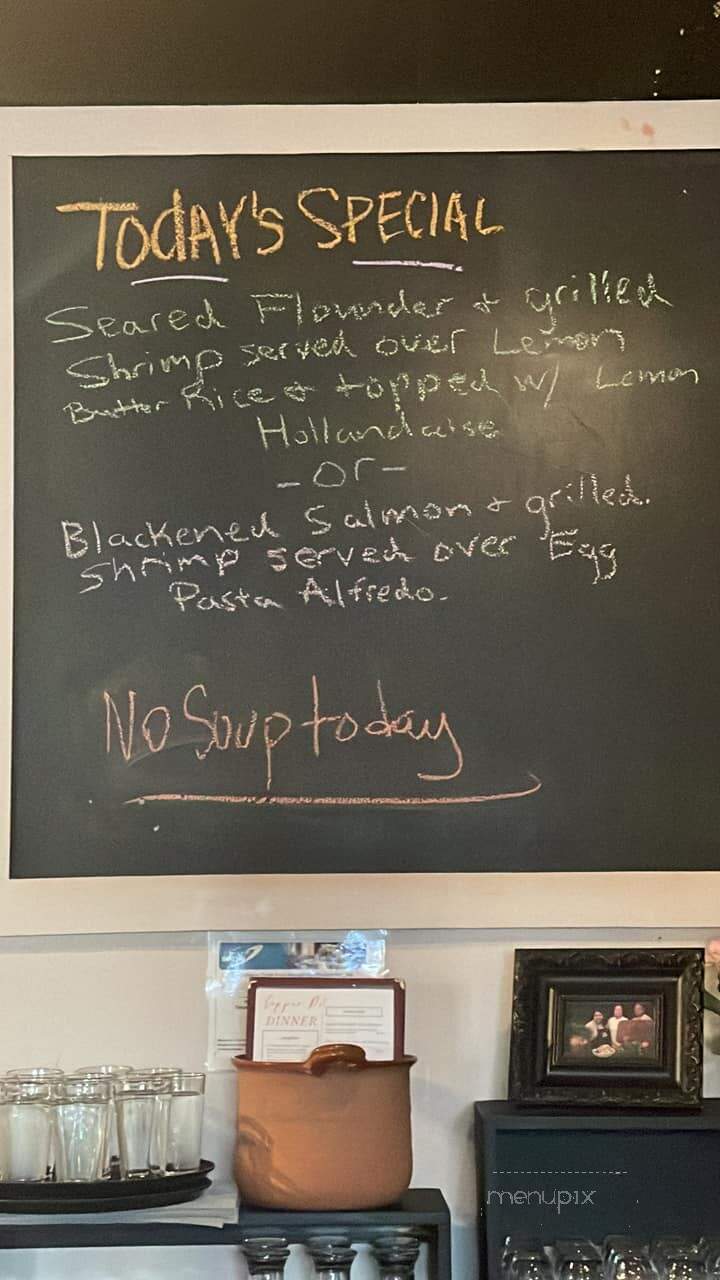 TODAY'S SPECIAL
Seared Flounder + grilled
Shrimp served over Lemon
Butter Rice + topped w/ Lemon
Hollandaise
- or -
Blackened Salmon + grilled.
Shrimp served over Egg
Pasta Alfredo.
No Soup today
DINNER
menupix